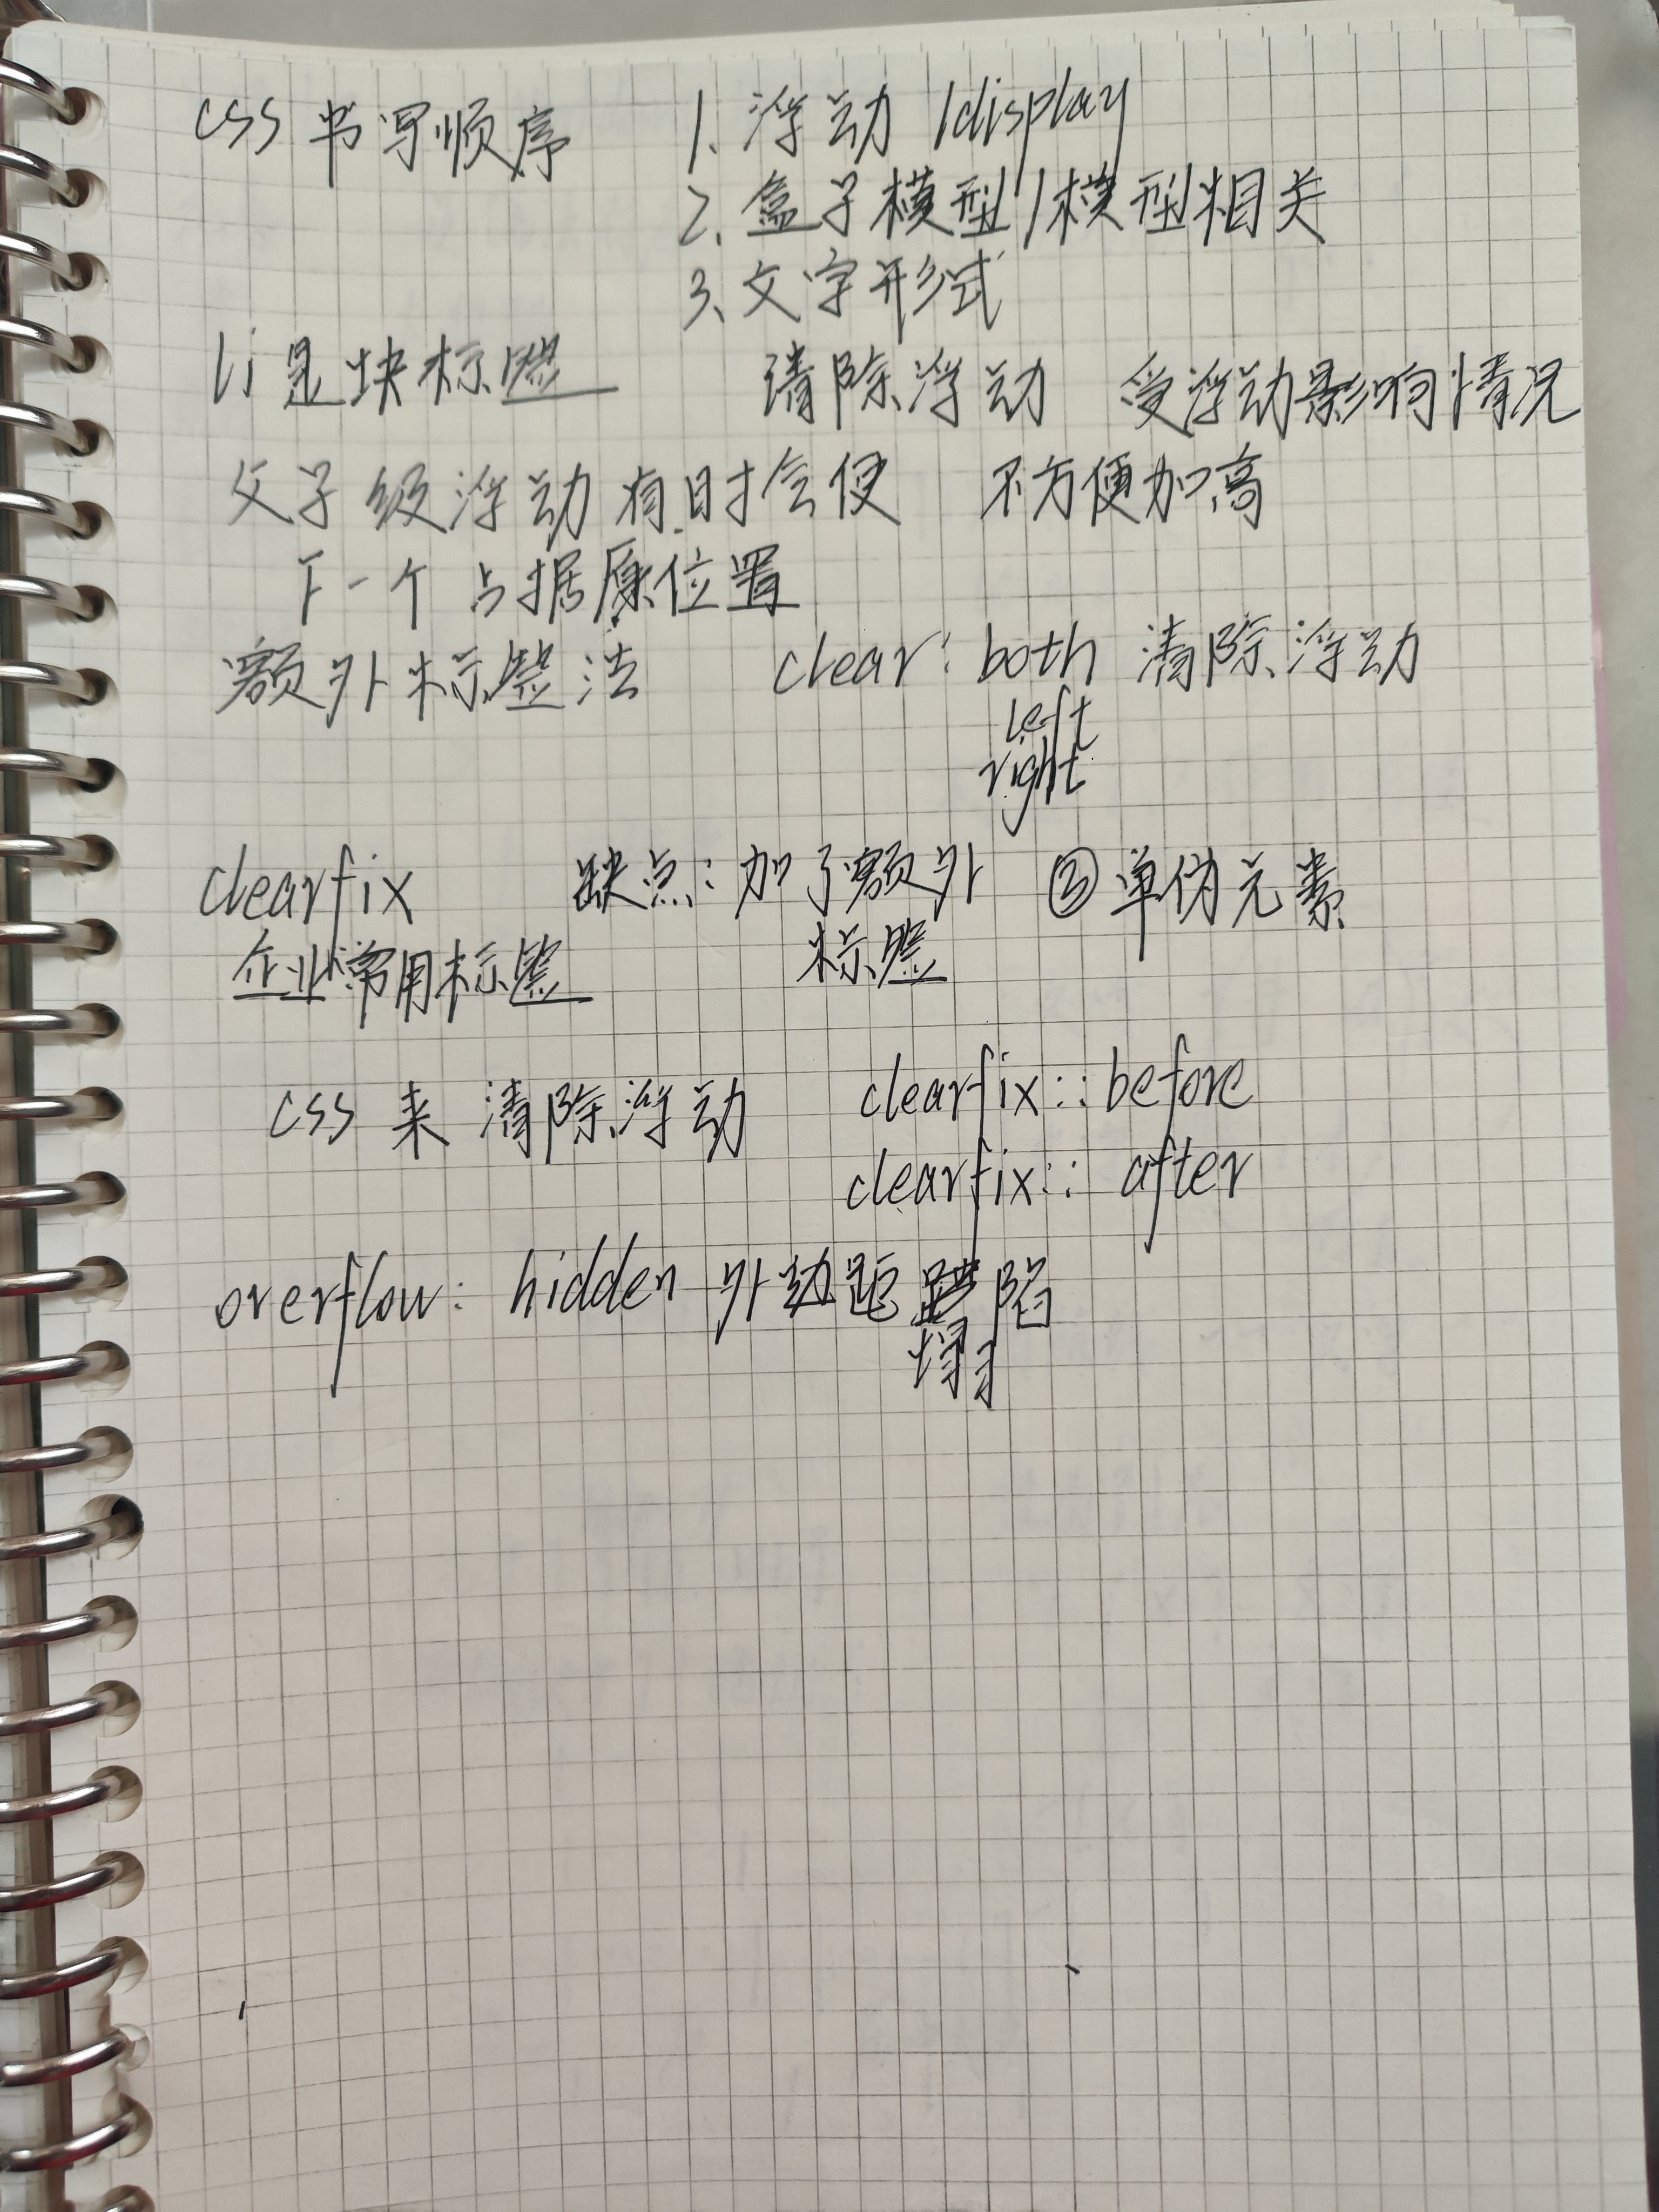 css 书写顺序 1. 浮动/display
2. 盒子模型/模型相关
3. 文字形式
li 是块标签 清除浮动 受浮动影响情况
父子级浮动有时会使 不方便加高
下一个占据原位置
额外标签法 clear: both 清除浮动
left
right
clearfix 缺点: 加了额外 ③单伪元素
企业常用标签 标签
css 来 清除浮动 clearfix::before
clearfix:: after
overflow: hidden 外动距 陷
塌